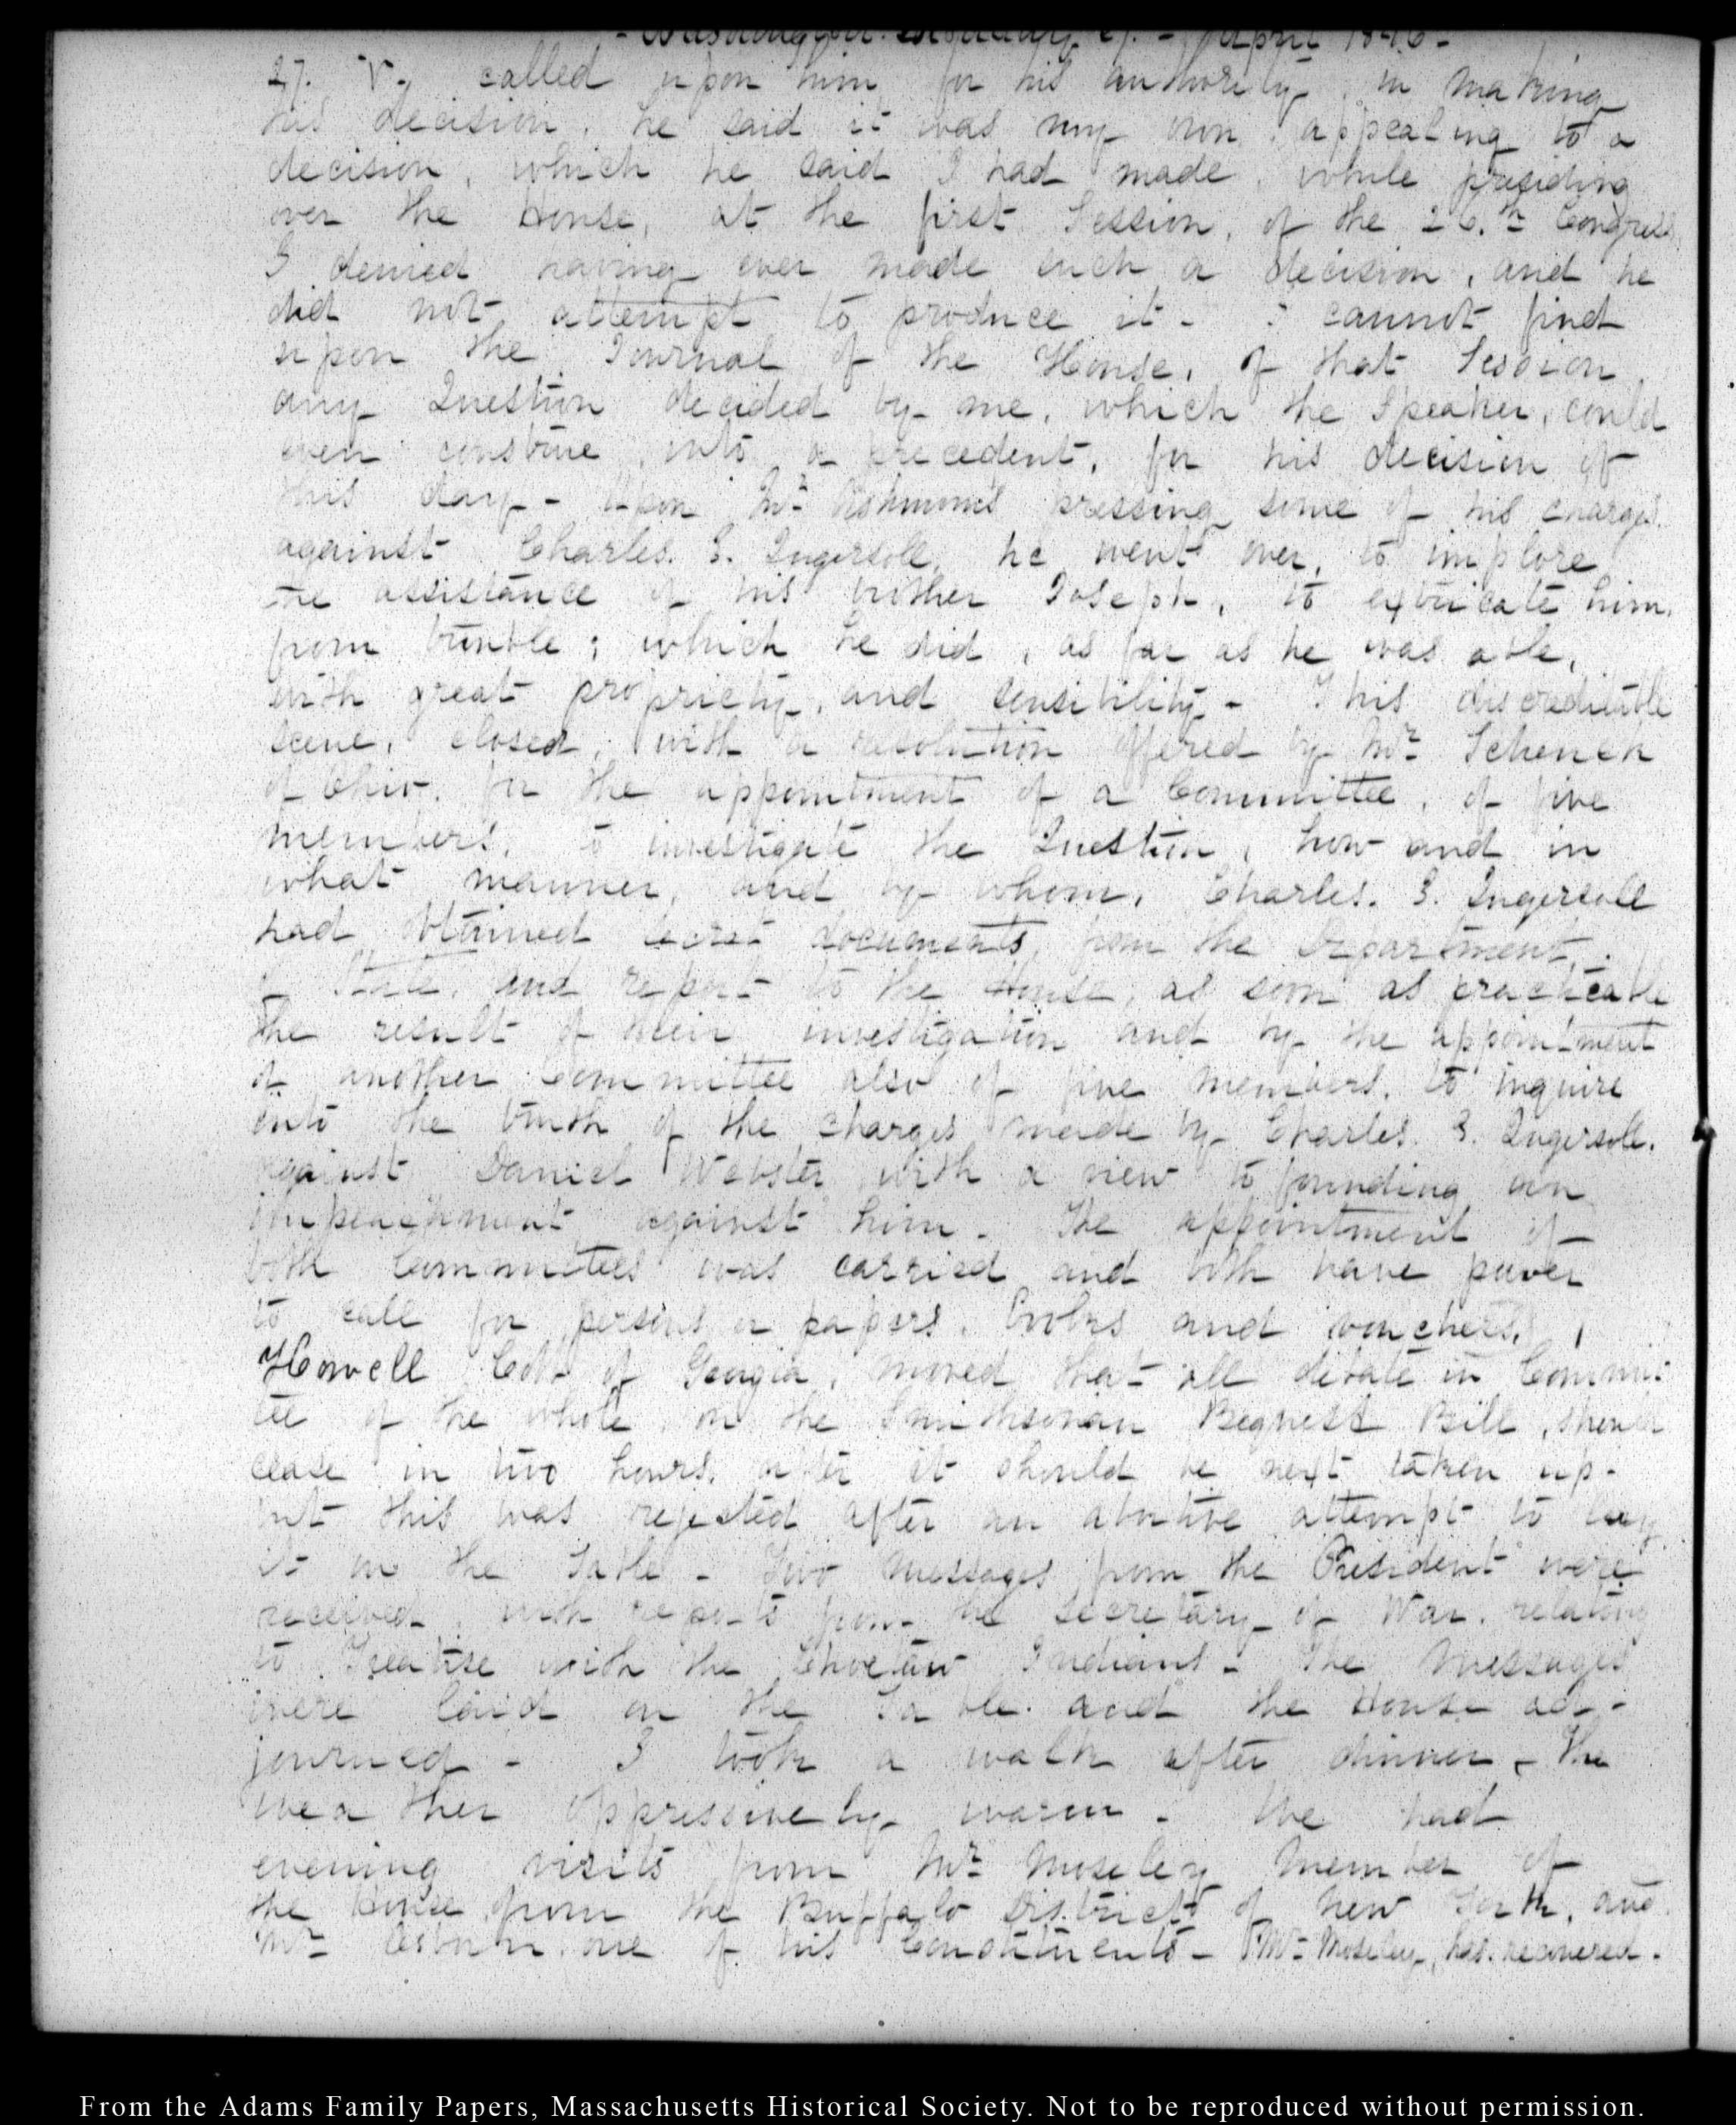 - Washington. Monday 27. - April 1846 -
27. V. I called upon him for his authority in making
this decision, he said it was my own, appealing to a
decision, which he said I had made, while presiding
over the House, at the first Session, of the 26.th Congress.
I denied having ever made such a decision, and he
did not attempt to produce it - I cannot find
upon the Journal of the House, of that Session
any Question decided by me, which the Speaker, could
even construe into a precedent, for his decision of
this day - Upon Mr. Ashmun's pressing some of his charges
against Charles. J. Ingersoll, he went over, to implore
the assistance of his brother Joseph, to extricate him,
from trouble; which he did, as far as he was able,
with great propriety, and sensibility - This discreditable
scene, closed, with a resolution offered by Mr. Schenck
of Ohio. for the appointment of a Committee, of five
members, to investigate the Question, how and in
what manner, and by whom, Charles. J. Ingersoll
had obtained secret documents, from the Department,
of State, and report to the House, as soon as practicable
the result of their investigation and by the appointment
of another Committee also of five members, to inquire
into the truth of the charges made by Charles. J. Ingersoll.
against Daniel Webster with a view to founding an
impeachment against him - The appointment of
both Committees was carried and both have power
to call for persons or papers, books and vouchers.
Howell Cobb of Georgia, moved that all debate in Commit:
tee of the whole, on the Smithsonian Bequest Bill, should
cease in two hours, after it should be next taken up -
but this was rejected after an abortive attempt to lay
it on the Table - Two Messages from the President were
received, with reports from the Secretary of War, relating
to Treaties with the Choctaw Indians - The Messages
were laid on the Table. and the House ad -
journed - I took a walk after dinner - The
weather oppressively warm - We had
evening visits from Mr. Moseley Member of
the House from the Buffalo District of New York, and
Mr. Osborn, one of his Constituents - Mr. Moseley, has recovered -
From the Adams Family Papers, Massachusetts Historical Society. Not to be reproduced without permission.